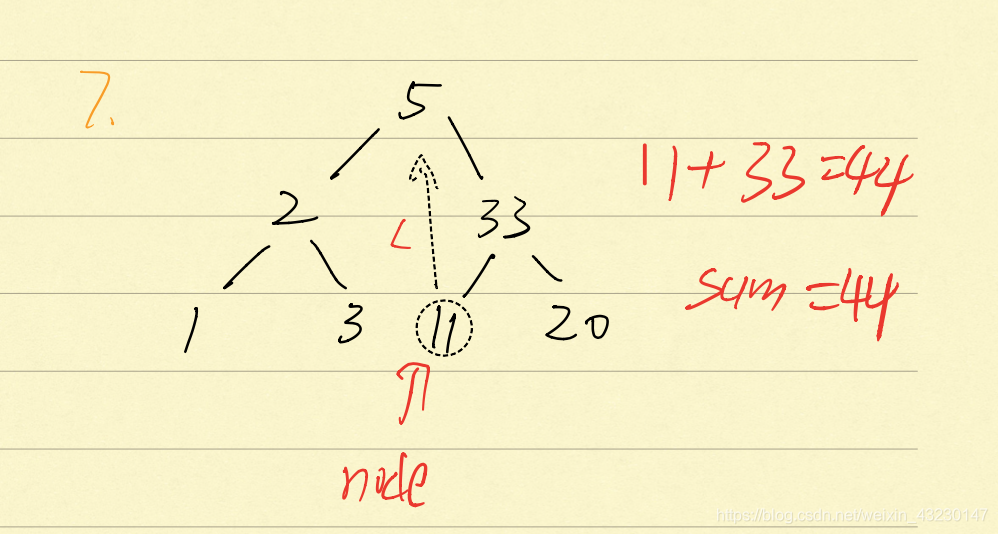 7.
5
11+33=44
2 < 33
sum=44
1 3 11 20
node
https://blog.csdn.net/weixin_43230147